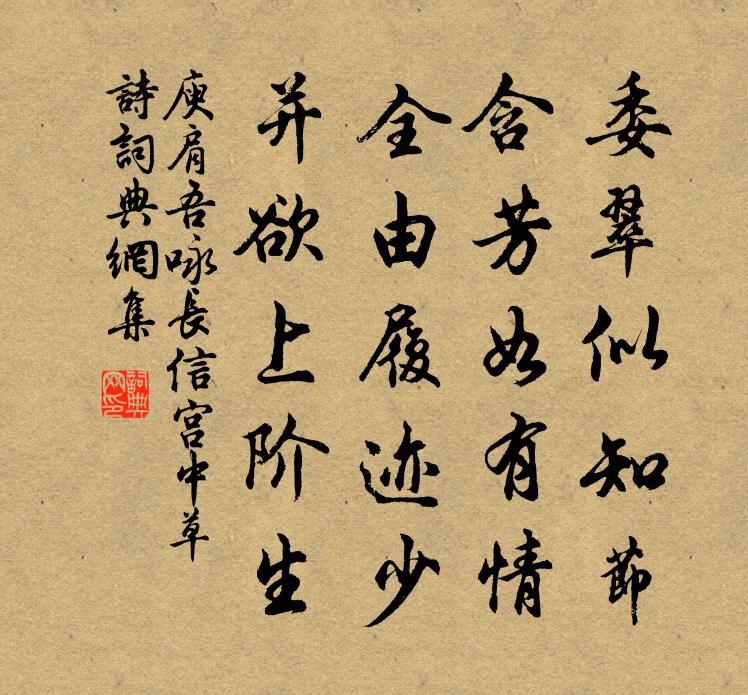 委翠似知節
含芳如有情
全由履迹少
并欲上阶生
庾肩吾咏長信宮中草
詩詞典網集
詞典網印